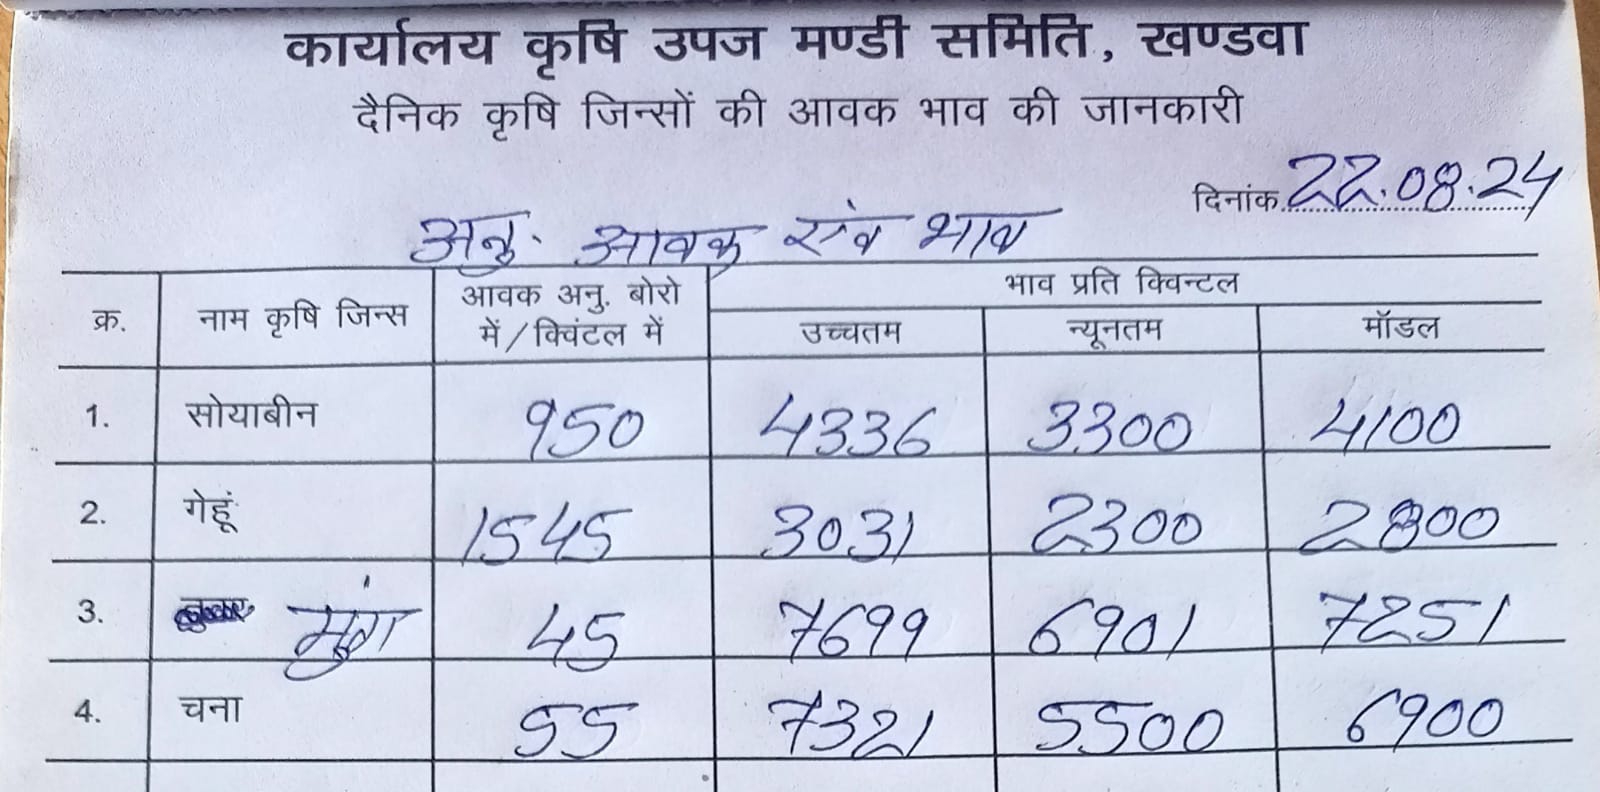 कार्यालय कृषि उपज मण्डी समिति, खण्डवा
दैनिक कृषि जिन्सों की आवक भाव की जानकारी
दिनांक 22.08.24
अनु. आवक एंव भाव
क्र. नाम कृषि जिन्स आवक अनु. बोरो में/क्विंटल में भाव प्रति क्विन्टल
उच्चतम न्यूनतम मॉडल
1. सोयाबीन 950 4336 3300 4100
2. गेहूं 1545 3031 2300 2800
3. मुंग 45 7699 6901 7251
4. चना 55 7321 5500 6900